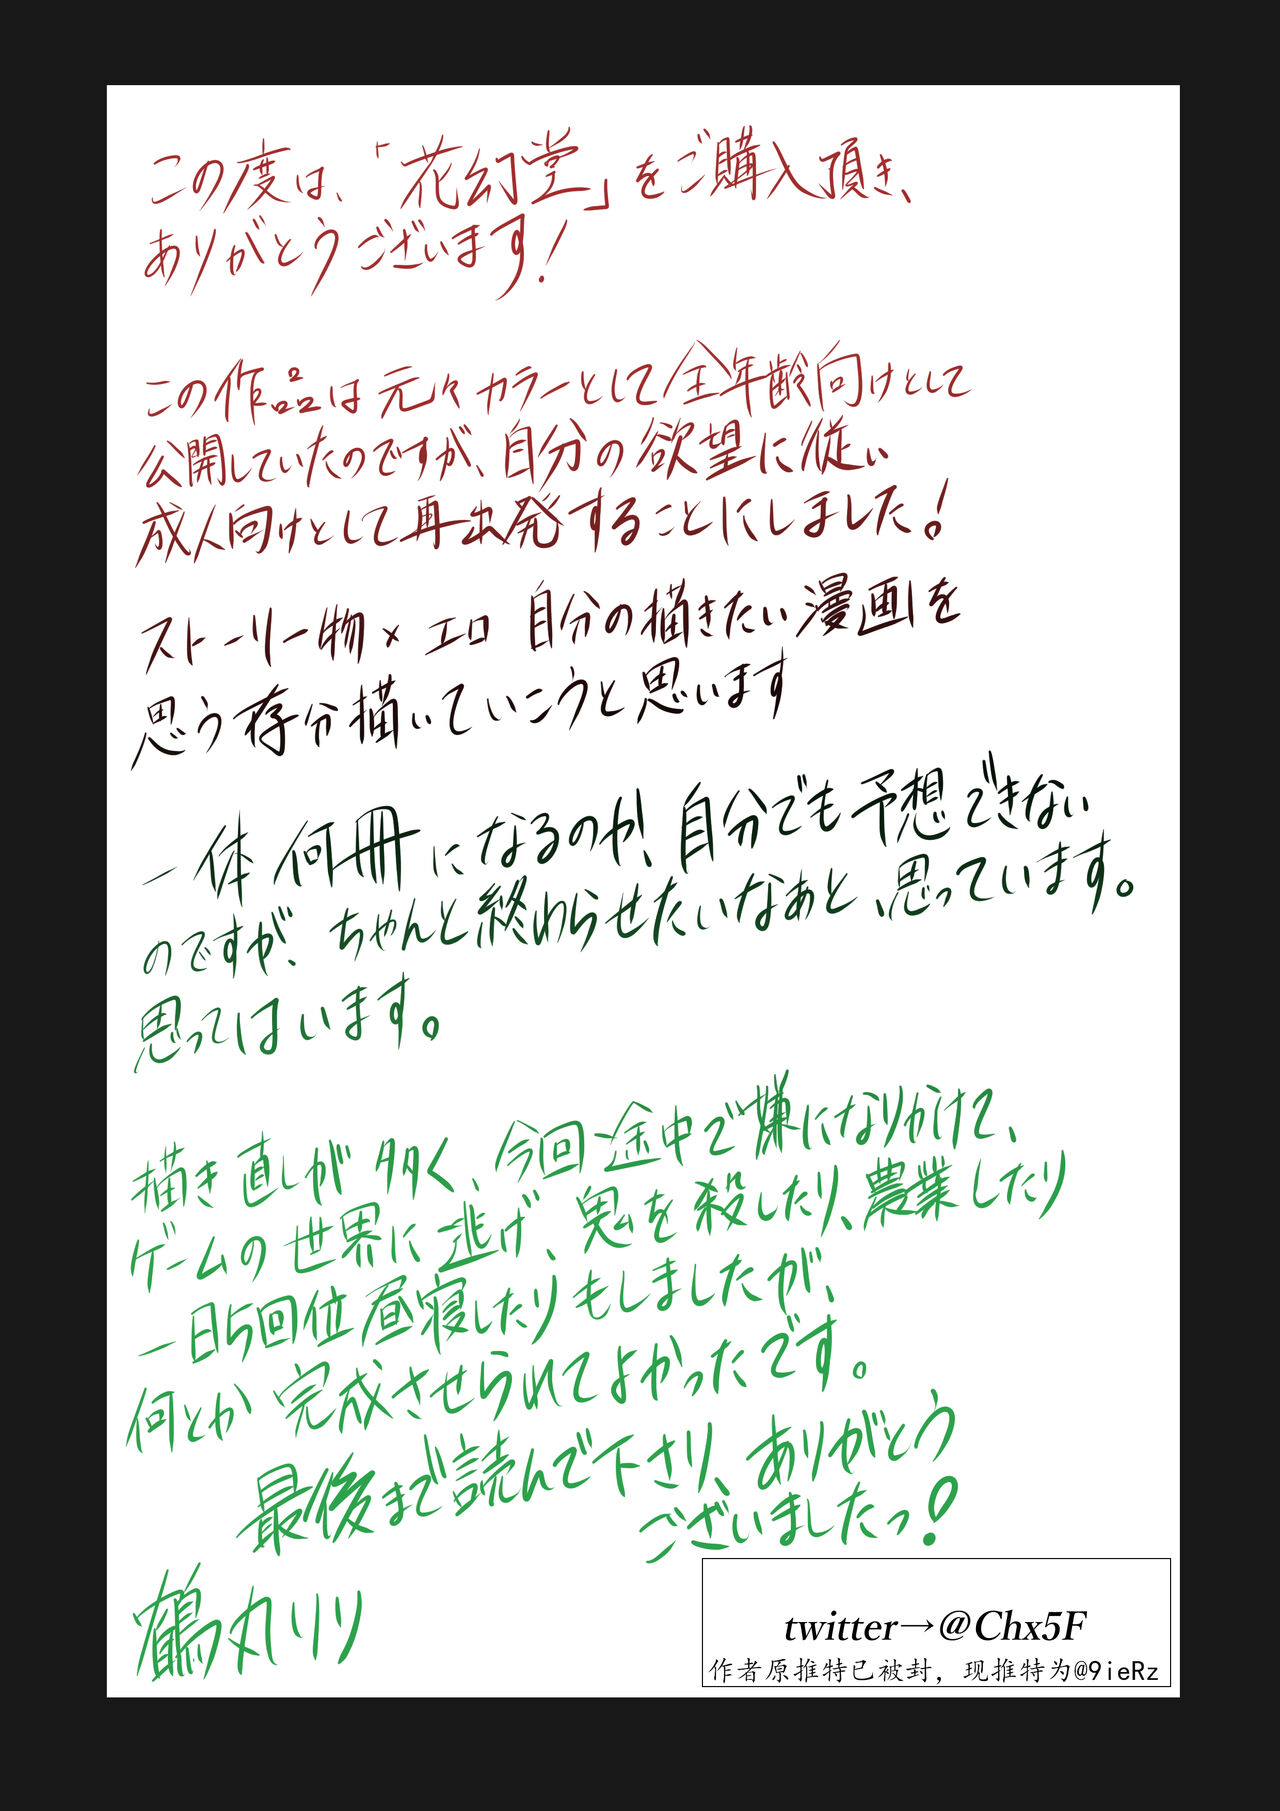 この度は、「花幻堂」をご購入頂き、
ありがとうございます!
この作品は元々カラーとして全年齢向けとして
公開していたのですが、自分の欲望に従い
成人向けとして再出発することにしました!
ストーリー物×エロ 自分の描きたい漫画を
思う存分描いていこうと思います
一体何冊になるのか、自分でも予想できない
のですが、ちゃんと終わらせたいなぁと、思っています。
思ってはいます。
描き直しが多く、今回途中で嫌になりかけて、
ゲームの世界に逃げ、鬼を殺したり、農業したり
一日5回位昼寝したりもしましたが、
何とか完成させられてよかったです。
最後まで読んで下さり、ありがとう
ございましたっ!
鶴丸リリ
twitter→@Chx5F
作者原推特已被封，现推特为@9ieRz